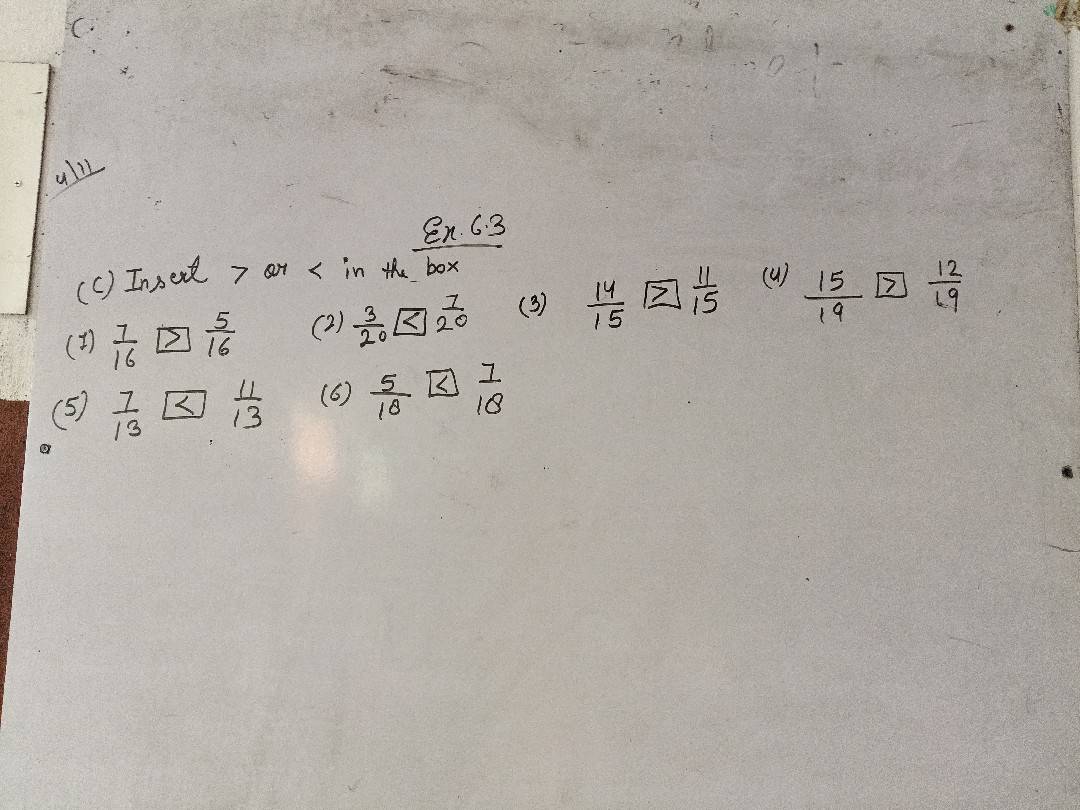 4/11
Ex. 6.3
(C) Insert > or < in the box
(1) 7/16 > 5/16 (2) 3/20 < 7/20 (3) 14/15 > 11/15 (4) 15/19 > 12/19
(5) 7/13 < 11/13 (6) 5/18 < 7/18